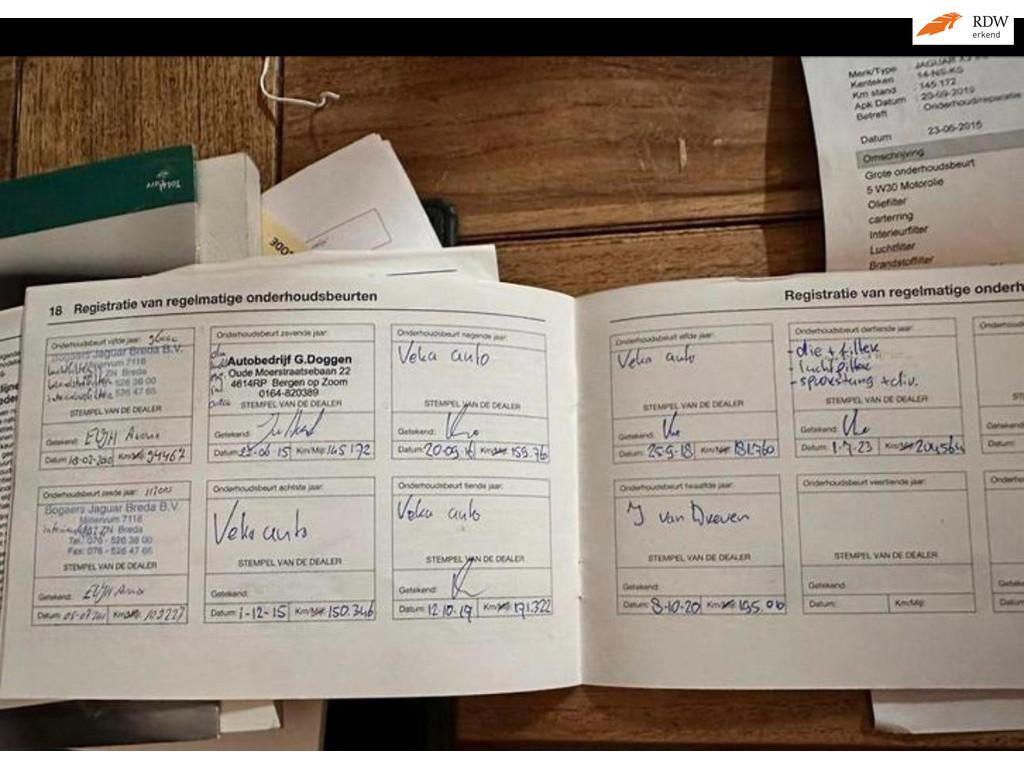 RDW
erkend
Merk/Type : JAGUAR
Kenteken : 14-NS-KG
Km stand : 145.172
Apk Datum : 20-09-2019
Betreft : Onderhoud/reparatie
Datum 23-06-2015
Omschrijving
Grote onderhoudsbeurt
5 W30 Motorolie
Oliefilter
carterring
Interieurfilter
Luchtfilter
Brandstoffilter
18 Registratie van regelmatige onderhoudsbeurten
Onderhoudsbeurt vijfde jaar:
Bogaers Jaguar Breda B.V.
Minervum 7118
STEMPEL VAN DE DEALER
Getekend:
Datum: Km/Mijl 94467
Onderhoudsbeurt zevende jaar:
Autobedrijf G.Doggen
Oude Moerstraatsebaan 22
4614RP Bergen op Zoom
0164-820389
STEMPEL VAN DE DEALER
Getekend:
Datum: 23-06-15 Km/Mijl 145172
Onderhoudsbeurt negende jaar:
Veka auto
STEMPEL VAN DE DEALER
Getekend:
Datum: 20-09-16 Km/Mijl 159.76
Onderhoudsbeurt zesde jaar:
Bogaers Jaguar Breda B.V.
Minervum 7118
Breda
Tel.: 076 - 526 38 00
Fax: 076 - 526 47 65
STEMPEL VAN DE DEALER
Getekend:
Datum: Km/Mijl 109227
Onderhoudsbeurt achtste jaar:
Veka auto
STEMPEL VAN DE DEALER
Getekend:
Datum: 1-12-15 Km/Mijl 150.346
Onderhoudsbeurt tiende jaar:
Veka auto
STEMPEL VAN DE DEALER
Getekend:
Datum: 12-10-17 Km/Mijl 171.322
Registratie van regelmatige onderh
Onderhoudsbeurt elfde jaar:
Veka auto
STEMPEL VAN DE DEALER
Getekend:
Datum: 25-9-18 Km/Mijl 181.760
Onderhoudsbeurt dertiende jaar:
- olie + filter
- luchtfilter
STEMPEL VAN DE DEALER
Getekend:
Datum: 1-7-23 Km/Mijl 204564
Onderhoudsb
Getekend:
Datum:
Onderhoudsbeurt twaalfde jaar:
J van Dreven
STEMPEL VAN DE DEALER
Getekend:
Datum: 8-10-20 Km/Mijl 195.06
Onderhoudsbeurt veertiende jaar:
STEMPEL VAN DE DEALER
Getekend:
Datum: Km/Mijl:
Getekend:
Datum: